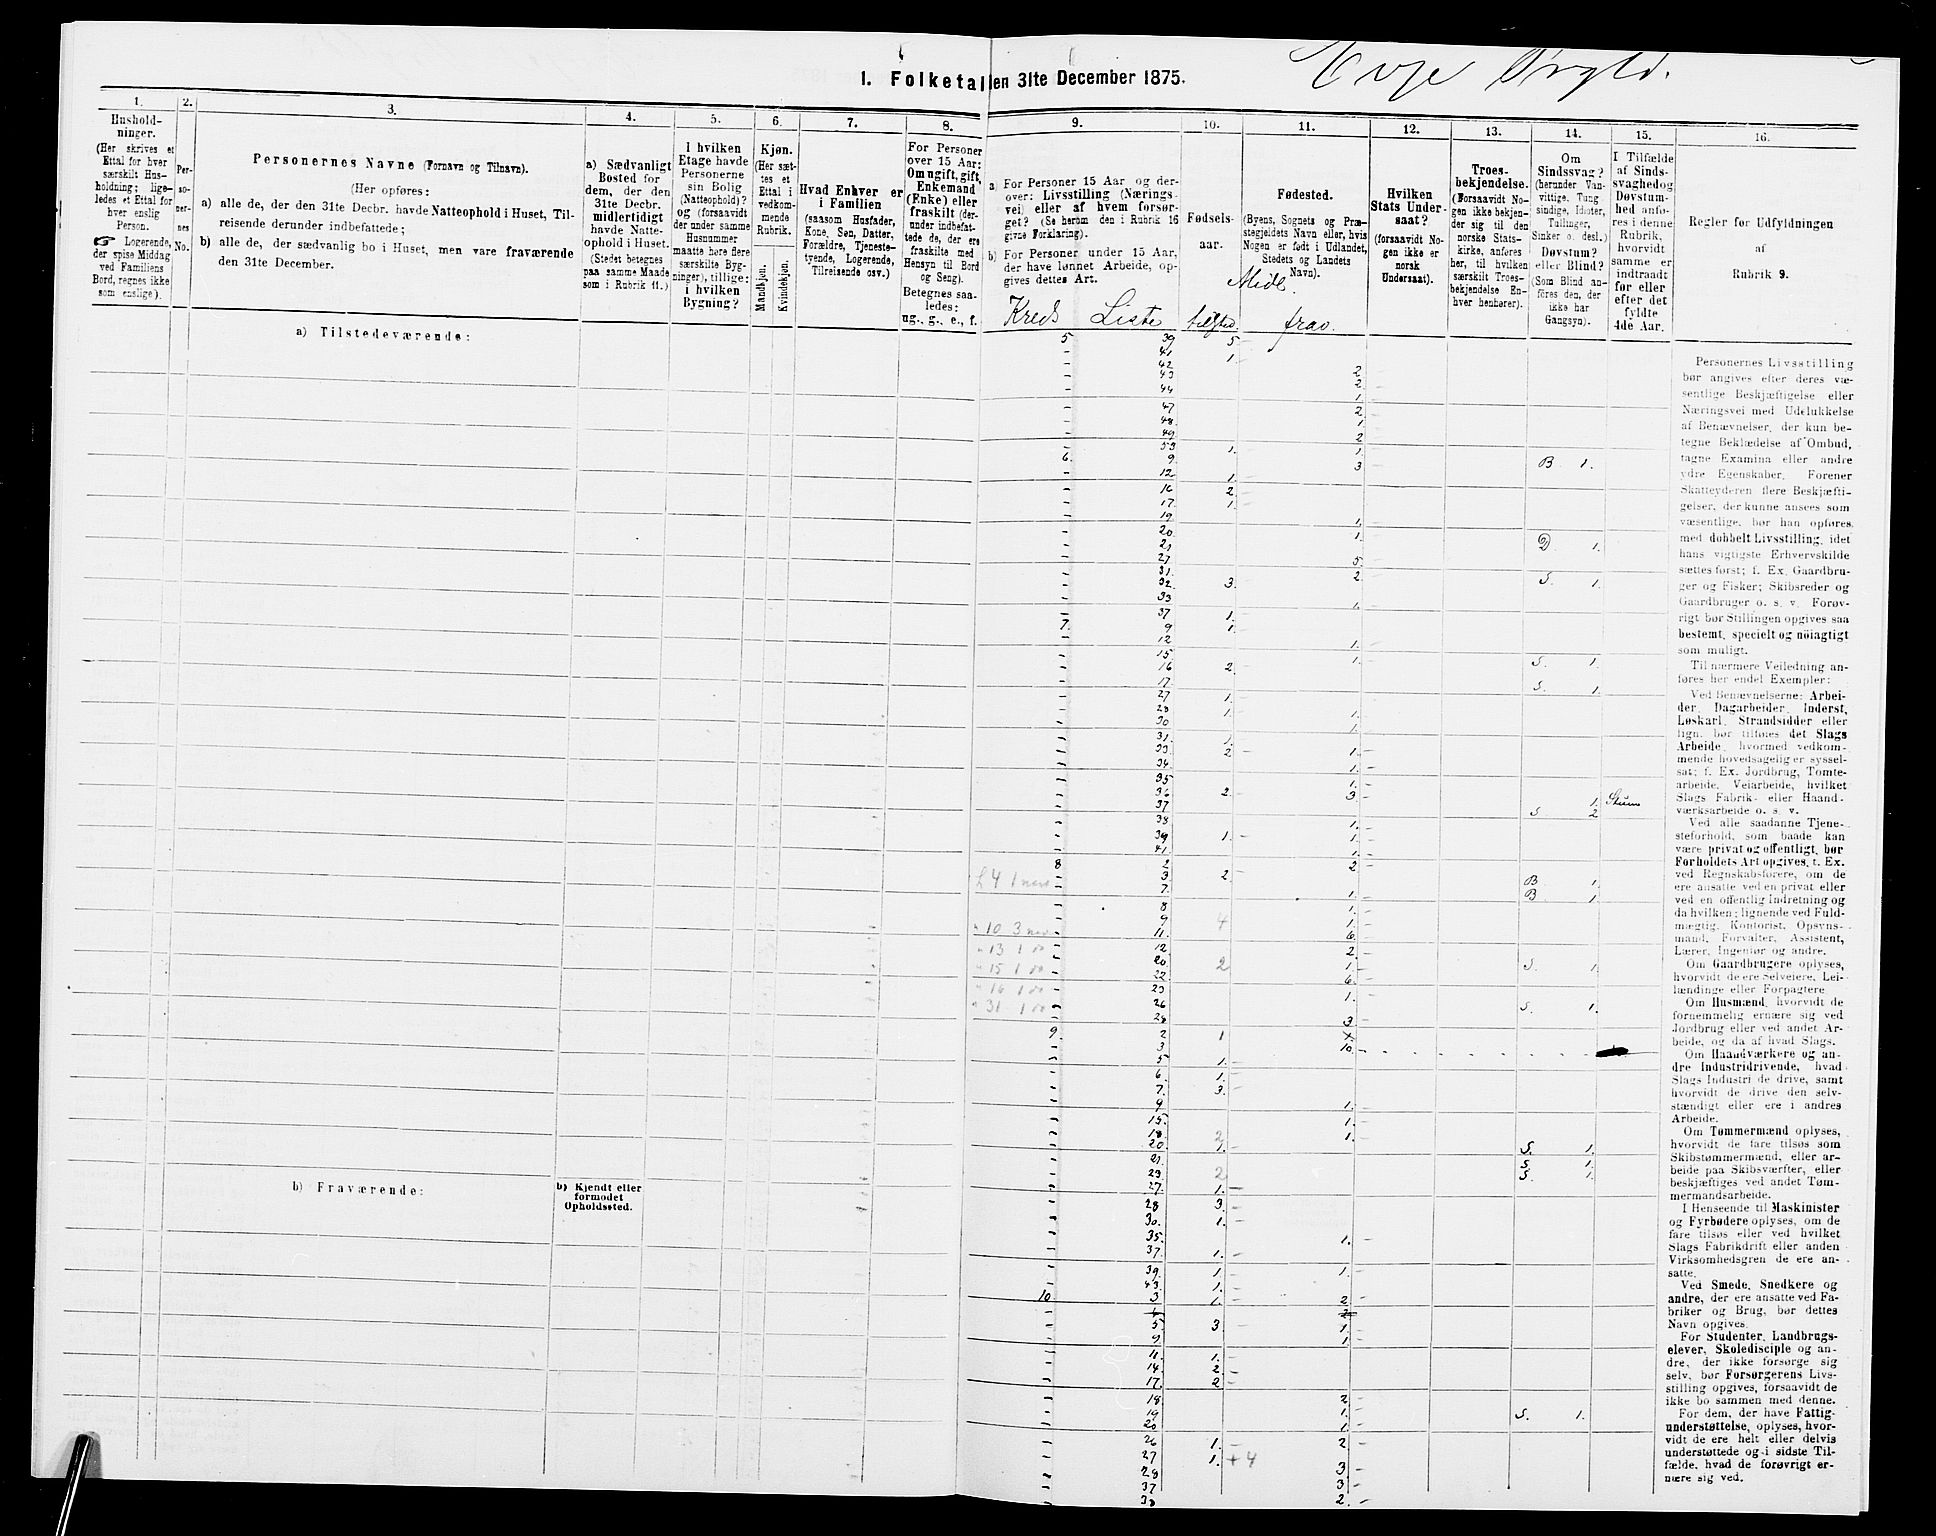 1. Folketallen 31te December 1875.
Evje
1.
Hushold-
ninger.
(Her skrives et
Ettal for hver
særskilt Hus-
holdning; lige-
ledes et Ettal for
hver enslig
Person.
Logerende,
der spise Middag
ved Familiens
Bord, regnes ikke
som enslige).
2.
Per-
so-
ner-
nes
No.
3.
Personernes Navne (Fornavn og Tilnavn).
(Her opføres:
a) alle de, der den 31te Decbr. havde Natteophold i Huset, Til-
reisende derunder indbefattede;
b) alle de, der sædvanlig bo i Huset, men vare fraværende
den 31te December.
4.
a) Sædvanligt
Bosted for
dem, der den
31te Decbr.
midlertidigt
havde Natte-
ophold i Huset.
(Stedet betegnes
paa samme Maade
som i Rubrik 11.)
5.
I hvilken
Etage havde
Personerne
sin Bolig
(Natteophold)?
og (forsaavidt
der under samme
Husnummer
maatte høre flere
særskilte Byg-
ninger), tillige:
i hvilken
Bygning?
6.
Kjøn.
(Her sæt-
tes et
Ettal i
vedkom-
mende
Rubrik.
Mandkjøn.
Kvindekjøn.
7.
Hvad Enhver er
i Familien
(saasom Husfader,
Kone, Søn, Datter,
Forældre, Tjeneste-
tyende, Logerende,
Tilreisende osv.)
8.
For Personer
over 15 Aar:
Om ugift, gift,
Enkemand
(Enke) eller
fraskilt (der-
under indbefat-
tede de, der ere
fraskilte med
Hensyn til Bord
og Seng).
Betegnes saa-
ledes:
ug., g., e., f.
9.
a) For Personer 15 Aar og der-
over: Livsstilling (Nærings-
vei) eller af hvem forsør-
get? (Se herom den i Rubrik 16
givne Forklaring).
b) For Personer under 15 Aar,
der have lønnet Arbeide, op-
gives dettes Art.
10.
Fødsels-
aar.
11.
Fødested.
(Byens, Sognets og Præ-
stegjeldets Navn eller, hvis
Nogen er født i Udlandet,
Stedets og Landets
Navn).
12.
Hvilken
Stats Under-
saat?
(forsaavidt No-
gen ikke er
norsk
Undersaat).
13.
Troes-
bekjendelse.
(Forsaavidt No-
gen ikke bekjen-
der sig til den
norske Stats-
kirke, anføres
her, til hvilken
særskilt Troes-
bekjendelse En-
hver henhører).
14.
Om
Sindssvag?
(herunder Van-
vittige, Tung
sindige, Idioter,
Tullinger,
Sinker o. desl.)
Døvstum?
eller Blind?
(Som Blind an-
føres den, der
ikke har
Gangsyn).
15.
I Tilfælde
af Sinds-
svaghed og
Døvstum-
hed anfø-
res i denne
Rubrik,
hvorvidt
samme er
indtraadt
før eller
efter det
fyldte
4de Aar.
16.
Regler for Udfyldningen
af
Rubrik 9.
Kreds Liste tilsted. Midl. frav.
a) Tilstedeværende:
5 39 5
- 41 1
- 42
- 43 2
- 44 2
1
- 47 2
- 48 1
- 49 2
- 53 1. 1
6. 9 3 B 1.
- 12 1
- 16 2
- 17 1
- 19 1
- 20. 1. D 1.
- 21
- 27 5.
- 31. 2
- 32 3 S. 1.
- 33 1.
- 37 1.
7. 9 1.
- 12 1.
- 15. 1.
- 16 2 S. 1.
- 17. S. 1.
- 27 1.
- 28 1. 1.
- 30 1.
- 31. 1.
- 33. 2 1.
- 34. 1.
- 35 1.
- 36 2. 3.
- 37 1.
S 2
- 38 1.
- 39 1. 1.
- 41. 1.
8 2 2
- 3. 2 B 1.
- 7. 1. B 1.
- 8 1.
- 9 4 1.
- 11. 6.
- 12 2.
- 20 2 1. S. 1.
- 22. 6.
- 23 1.
- 26 S. 1.
- 28. 3
9. 2 1
- 3 10.
- 5 1.
- 6. 1.
- 7. 3.
- 9 1.
- 15. 1.
- 18. 2 1.
- 20 1. S. 1.
- 21. S. 1.
- 23. 2 S. 1.
- 27. 1.
- 28 3.
- 30. 1.
- 35. 1.
- 37. 1.
- 39. 1. 1.
- 43. 1.
10. 3 1. 2
- 5 3. 1
- 9. 1.
- 11. 1.
- 14. 2.
- 17. 2
- 18 2
- 19 1. S. 1.
- 20 1.
- 26 1. 2
- 27 1. + 4
- 28 3
- 37 3
- 38 2.
b) Fraværende:
b) Kjendt eller
formodet
Opholdssted.
Personernes Livsstilling
bør angives efter deres væ-
sentlige Beskjæftigelse eller
Næringsvei med Udelukkelse
af Benævnelser, der kun be-
tegne Beklædelse af Ombud,
tagne Examina eller andre
ydre Egenskaber. Forener
Skatteyderen flere Beskjæfti-
gelser, der kunne ansees som
væsentlige, bør han opføres
med dobbelt Livsstilling, idet
hans vigtigste Erhvervskilde
sættes først; f. Ex. Gaardbru-
ger og Fisker; Skibsreder og
Gaardbruger o. s. v. Forøv-
rigt bør Stillingen opgives saa
bestemt, specielt og nöiagtigt
som muligt.
Til nærmere Veiledning an-
føres her endel Exempler:
Ved Benævnelserne: Arbei-
der, Dagarbeider, Inderst,
Løskarl, Strandsidder eller
lign. bør tilføies det Slags
Arbeide, hvormed vedkom-
mende hovedsagelig er syssel-
sat; f. Ex. Jordbrug, Tomte-
arbeide, Veiarbeide, hvilket
Slags Fabrik- eller Haand-
værksarbeide o. s. v.
Ved alle saadanne Tjene-
steforhold, som baade kan
være privat og offentligt, bør
Forholdets Art opgives, f. Ex.
ved Regnskabsførere, om de
ere ansatte ved en privat eller
ved en offentlig Indretning og
da hvilken; lignende ved Fuld-
mægtig, Kontorist, Opsyns-
mand, Forvalter, Assistent,
Lærer, Ingeniør og andre.
Om Gaardbrugere oplyses,
hvorvidt de ere Selveiere, Lei-
lændinge eller Forpagtere.
Om Husmænd, hvorvidt de
fornemmelig ernære sig ved
Jordbrug eller ved andet Ar-
beide, og da af hvad Slags.
Om Haandværkere og an-
dre Industridrivende, hvad
Slags Industri de drive, samt
hvorvidt de drive den selv-
stændigt eller ere i andres
Arbeide.
Om Tømmermænd oplyses,
hvorvidt de fare tilsøs som
Skibstømmermænd, eller ar-
beide paa Skibsværfter, eller
beskjæftiges ved andet Tøm-
mermandsarbeide.
I Henseende til Maskinister
og Fyrbødere oplyses, om de
fare tilsøs eller ved hvilket
Slags Fabrikdrift eller anden
Virksomhedsgren de ere an-
satte.
Ved Smede, Snedkere og
andre, der ere ansatte ved Fa-
briker og Brug, bør dettes
Navn opgives.
For Studenter, Landbrugs-
elever, Skoledisciple og an-
dre, der ikke forsørge sig
selv, bør Forsørgerens Livs-
stilling opgives, forsaavidt de
ikke bo sammen med denne.
For dem, der have Fattig-
understøttelse, oplyses, hvor-
vidt de ere helt eller delvis
understøttede og i sidste Til-
fælde, hvad de forøvrigt er-
nære sig ved.